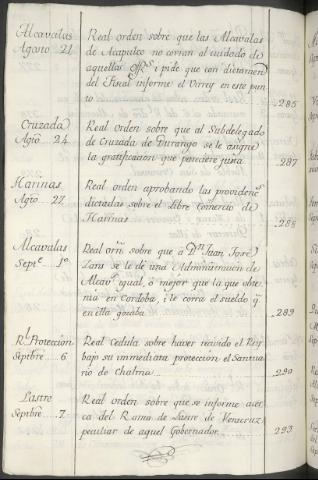 Alcavalas
Agosto 21
Real orden sobre que las Alcavalas
de Acapulco no corran al cuidado de
aquellos Off.s i pide que con dictamen
del Fiscal informe el Virrey en este pun
to 286
Cruzada
Agto 24
Real Orden sobre que al Subdelegado
de Cruzada de Durango se le asigne
la gratificacion que pareciere justa 287
Harinas
Agto. 27
Real orden aprobando las providens
dictadas sobre el Libre Comercio de
Harinas 288
Alcavalas
Septe. 1o
Real orn. sobre que a Dn. Juan José
Lans se le dé una Administracion de
Alcavs. igual, o mejor que la que obte
nia en Cordoba, i le corra el sueldo q.
en ella gozaba 289
Rl. Proteccion
Septbre 6
Real Cedula sobre haver recivido el Rey
bajo su immediata proteccion el Santua
rio de Chalma 290
Lastre
Septbre 7
Real orden sobre que se informe acer
ca del Ramo de Lastre de Veracruz
peculiar de aquel Gobernador 293